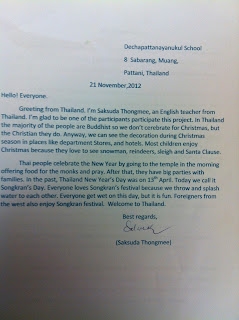 Dechapattanayanukul School
8 Sabarang, Muang,
Pattani, Thailand
21 November,2012
Hello! Everyone.
Greeting from Thailand. I'm Saksuda Thongmee, an English teacher from
Thailand. I'm glad to be one of the participants participate this project. In Thailand
the majority of people are Buddhist so we don't celebrate for Christmas, but
the Christian they do. Anyway, we can see the decoration during Christmas
season in places like department Stores, and hotels. Most children enjoy
Christmas because they love to see snowman, reindeers, sleigh and Santa Clause.
That people celebrate the New Year by going to the temple in the morning
offering food for the monks and pray. After that, they have big parties with
families. In the past, Thailand New Year's Day was on 13th April. Today we call it
Songkran's Day. Everyone loves Songkran's festival because we throw and splash
water to each other. Everyone get wet on this day, but it is fun. Foreigners from
the west also enjoy Songkran festival. Welcome to Thailand.
Best regards,
(Saksuda Thongmee)